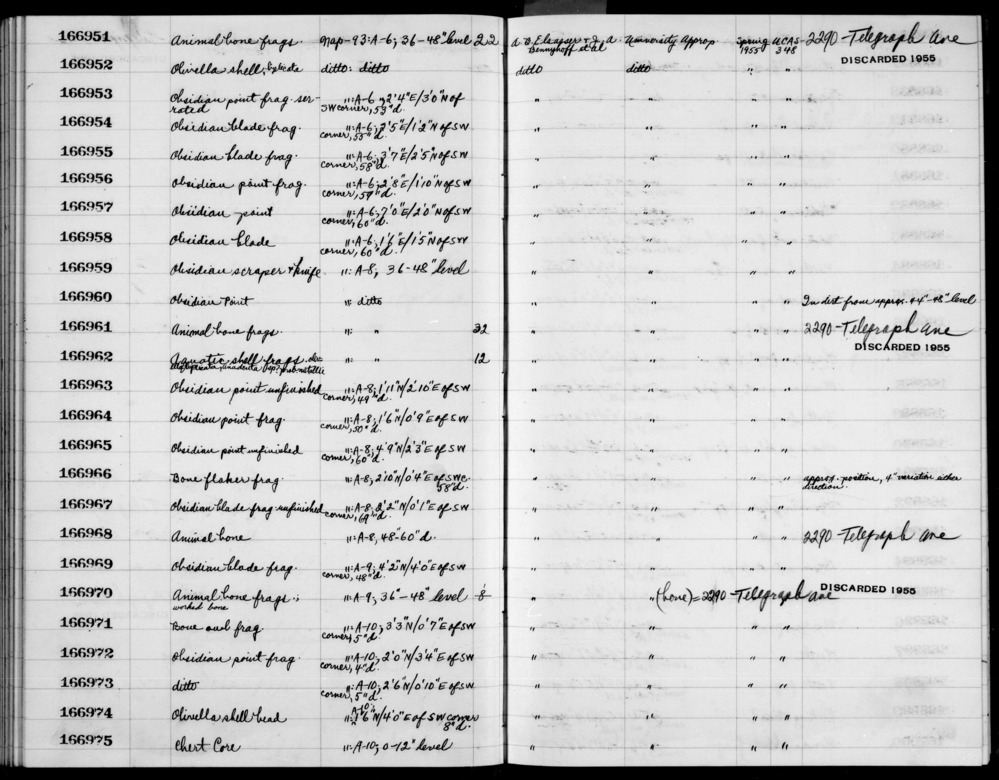 166951 Animal bone frags. Nap-93: A-6; 36-48" level 22 A. B. Elsasser & J. A. Bennyhoff et al University Approp. Spring 1955 UCAS 348 2290-Telegraph Ave
DISCARDED 1955
166952 Olivella shell, ditto: ditto ditto ditto " "
166953 Obsidian point frag. serrated ": A-6; 2'4"E/3'0"N of SW corner, 53"d. " " " "
166954 Obsidian blade frag. ": A-6; 2'5"E/1'2"N of SW corner, 55"d. " " " "
166955 Obsidian blade frag. ": A-6; 3'7"E/2'5"N of SW corner, 58"d. " " " "
166956 Obsidian point frag. ": A-6; 2'8"E/1'10"N of SW corner, 59"d. " " " "
166957 Obsidian point ": A-6; 7'0"E/2'0"N of SW corner, 60"d. " " " "
166958 Obsidian blade ": A-6; 1'6"E/1'5"N of SW corner, 60"d. " " " "
166959 Obsidian scraper & knife ": A-8; 36-48" level " " " "
166960 Obsidian Point ": ditto " " " " In dist from approx. 44"-48" level
166961 Animal bone frags. ": " 32 " " " " 2290-Telegraph Ave
DISCARDED 1955
166962 Aquatic shell frags. ": " 12 " " " "
166963 Obsidian point unfinished ": A-8; 1'11"N/2'10"E of SW corner, 49"d. " " " "
166964 Obsidian point frag. ": A-8; 1'6"N/0'9"E of SW corner, 50"d. " " " "
166965 Obsidian point unfinished ": A-8; 4'9"N/2'3"E of SW corner, 60"d. " " " "
166966 Bone flaker frag. ": A-8; 2'10"N/0'4"E of SWc. 58"d. " " " " approx. position, 4" variation either direction.
166967 Obsidian blade frag unfinished ": A-8; 2'2"N/0'1"E of SW corner, 69"d. " " " "
166968 Animal bone ": A-8, 48-60"d. " " " " 2290-Telegraph Ave
166969 Obsidian blade frag. ": A-9; 4'2"N/4'0"E of SW corner, 48"d. " " " "
DISCARDED 1955
166970 Animal bone frags.; worked bone ": A-9; 36"-48" level 8 " " (bone)=2290-Telegraph Ave
166971 Bone awl frag ": A-10; 3'3"N/0'7"E of SW corner, 5"d. " " " "
166972 Obsidian point frag. ": A-10; 2'0"N/3'4"E of SW corner, 4"d. " " " "
166973 ditto ": A-10; 2'6"N/0'10"E of SW corner, 5"d. " " " "
166974 Olivella shell bead ": A-10; 1'6"N/4'0"E of SW corner 8"d. " " " "
166975 Chert Core ": A-10; 0-12" level " " " "